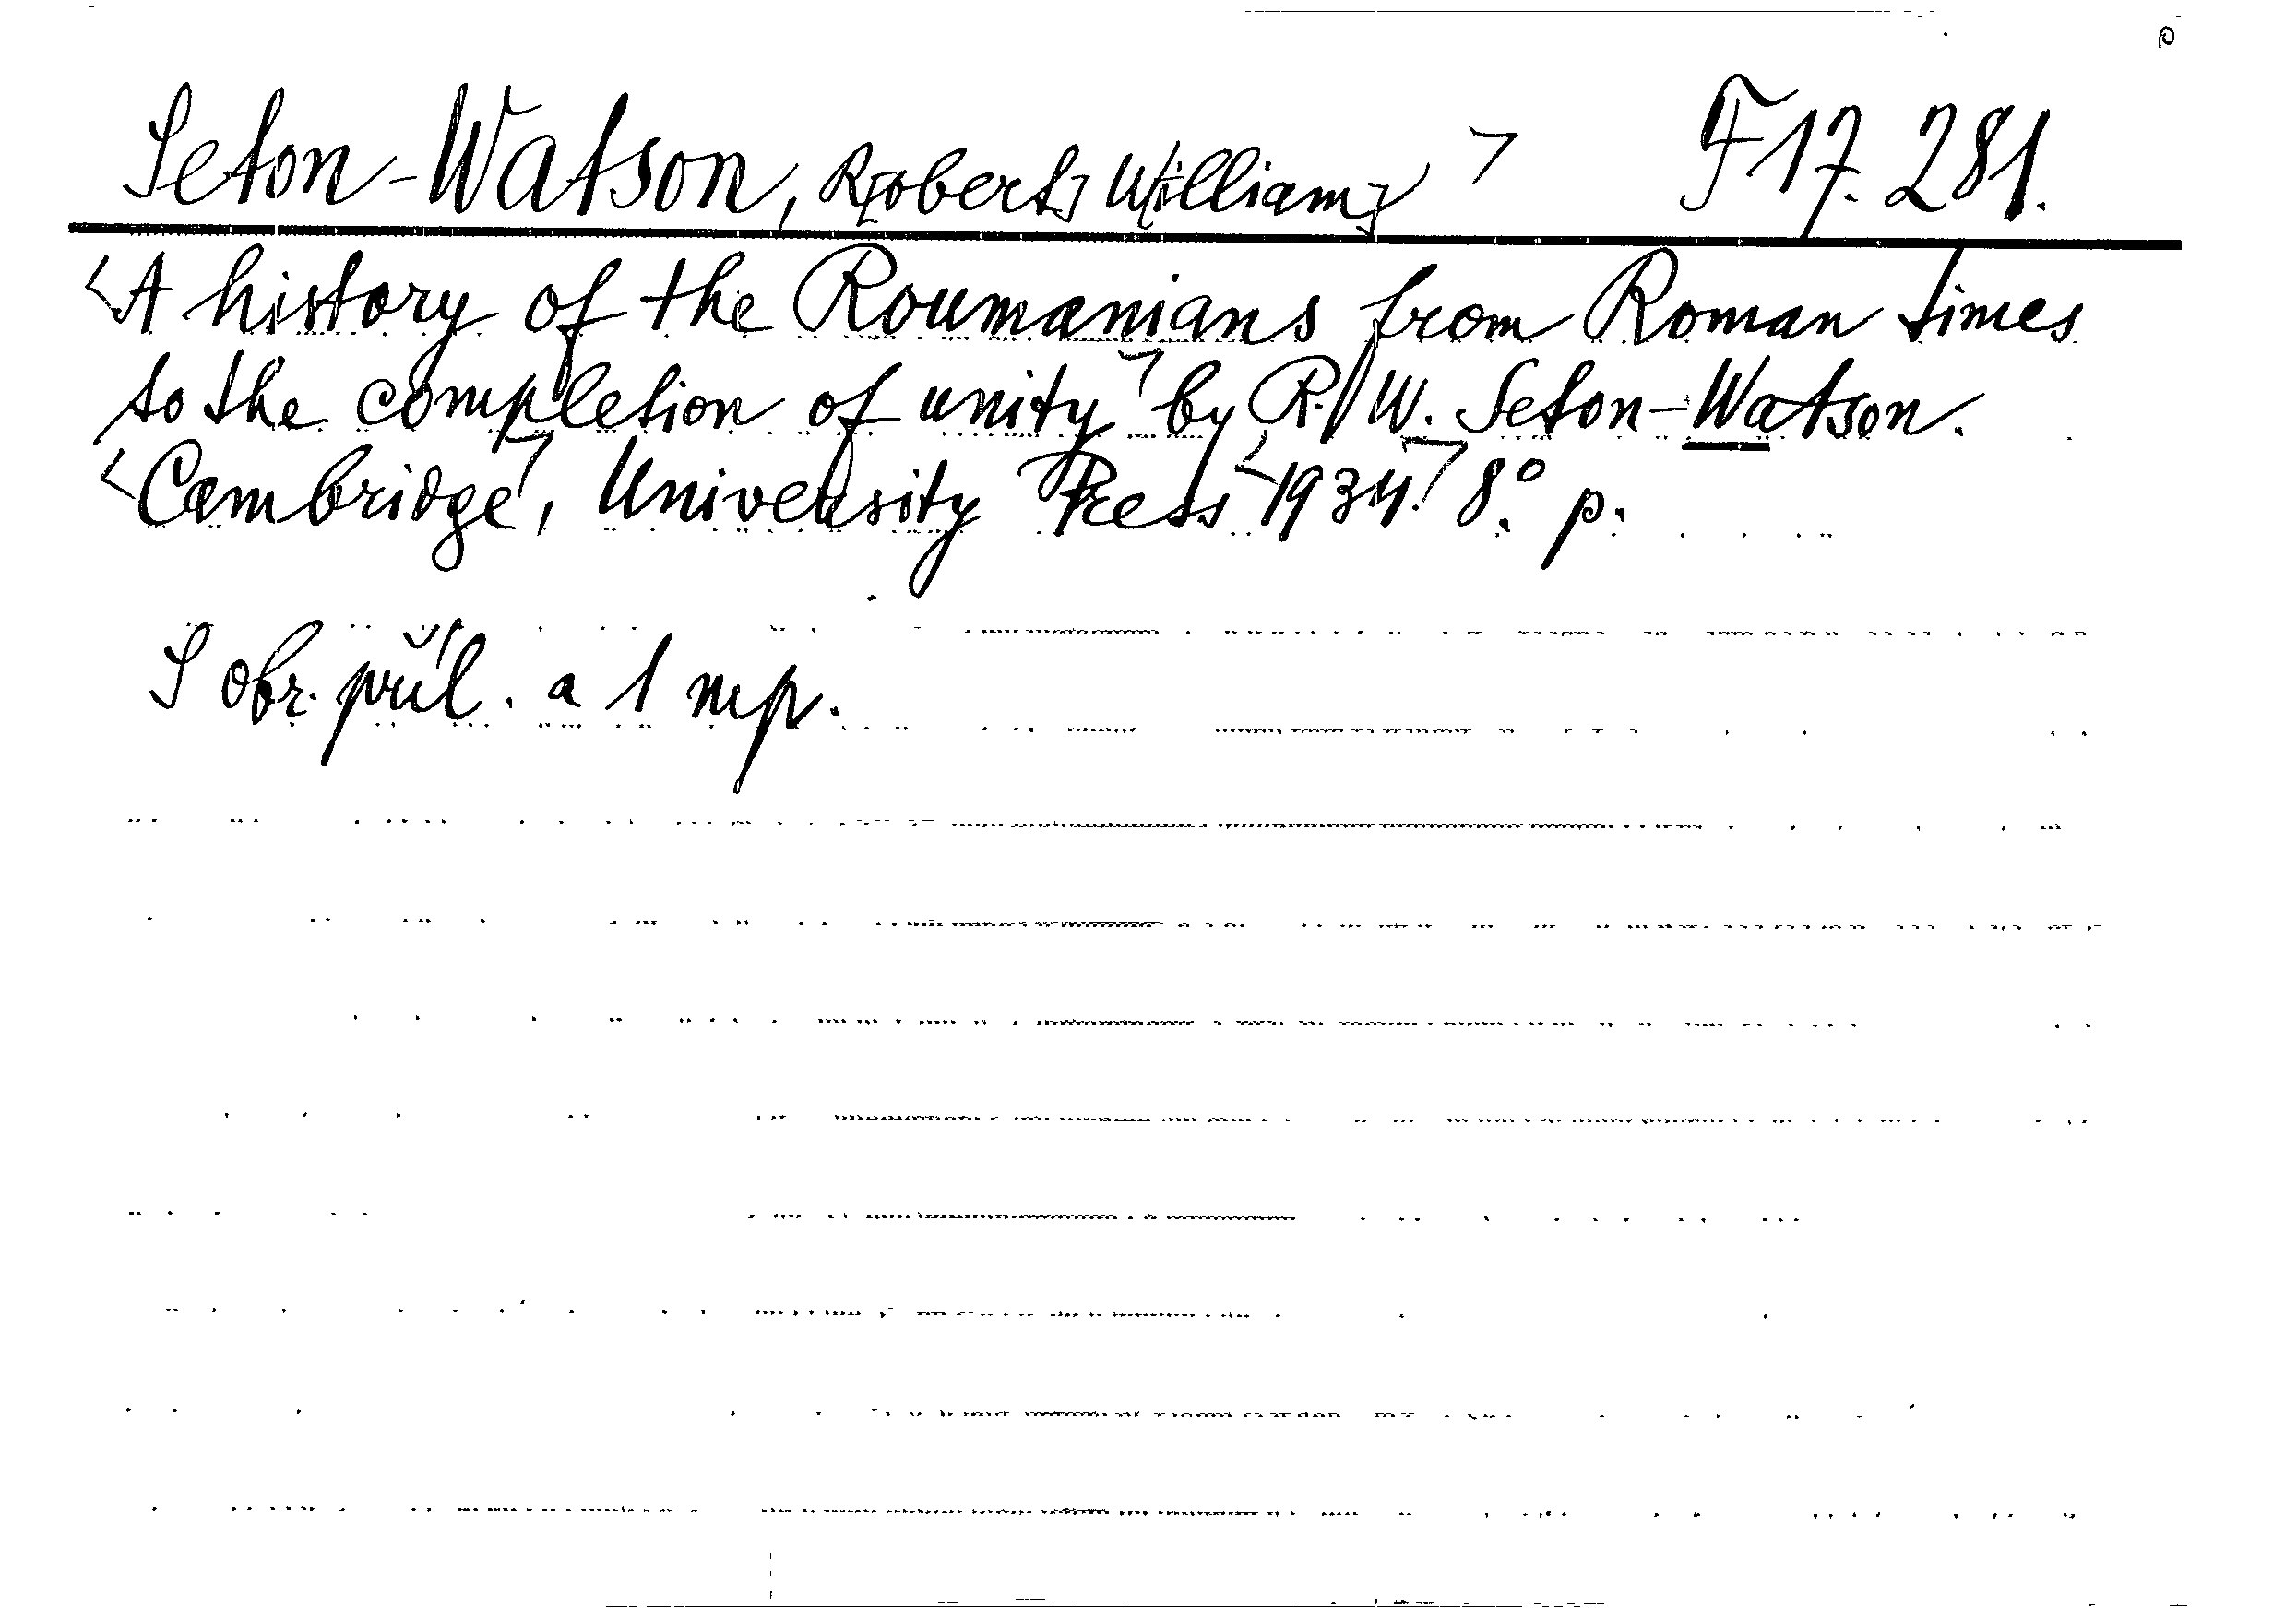 Seton-Watson, R[obert] W[illiam] F 17.281.
A history of the Roumanians from Roman times
to the completion of unity by R. W. Seton-Watson.
Cambridge, University Press 1934. 8° p.
S obr. příl. a 1 mp.